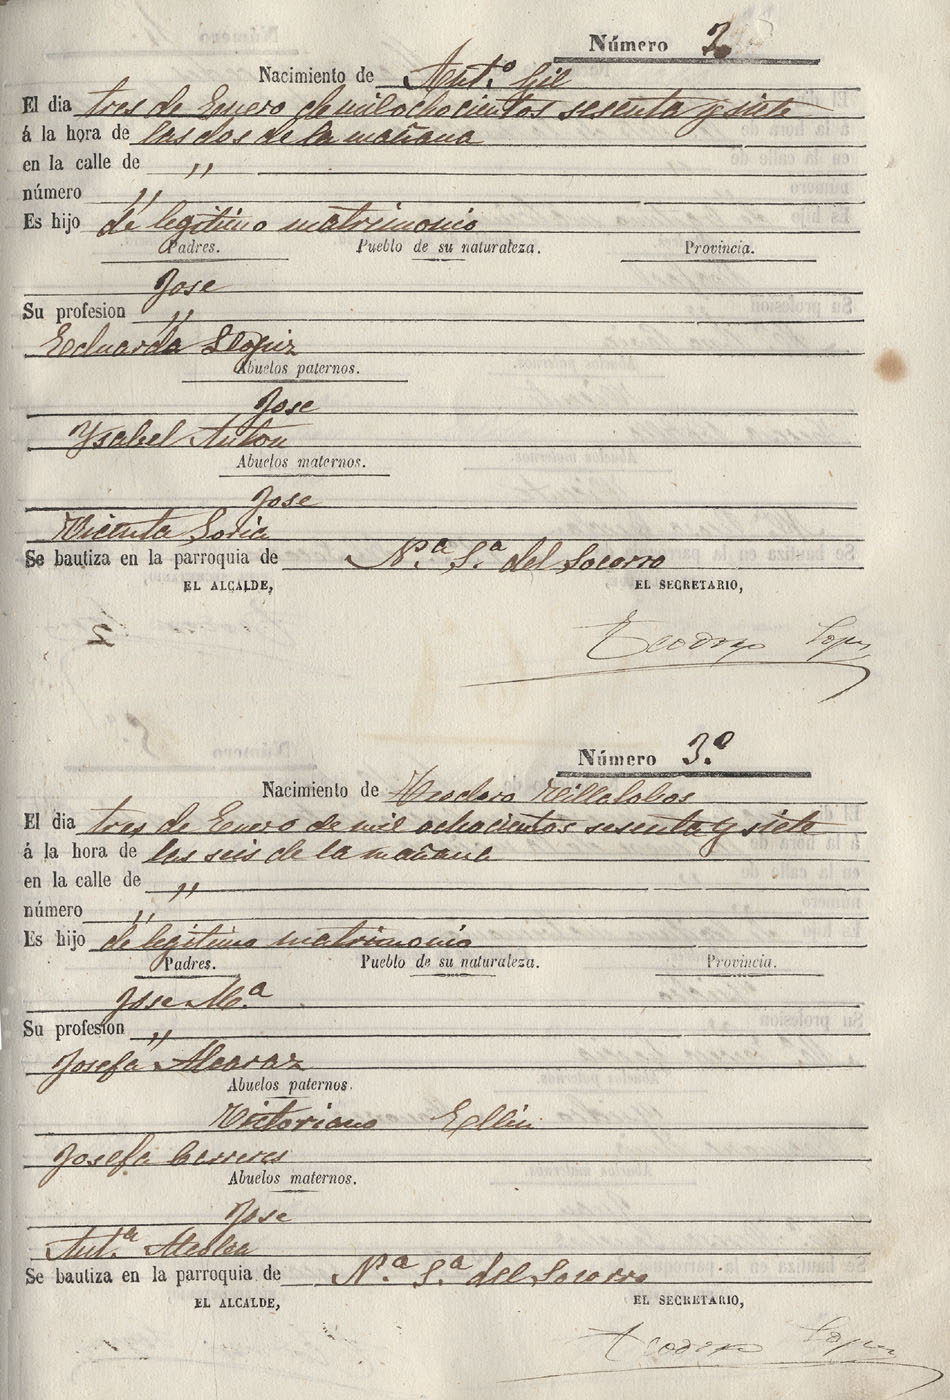 Número 2.
Nacimiento de Ant.º Gil
El dia tres de Enero de mil ochocientos sesenta y siete
á la hora de las dos de la mañana
en la calle de "
número "
Es hijo de legitimo matrimonio
Padres. Pueblo de su naturaleza. Provincia.
Jose
Su profesion "
Eduarda Llopiz
Abuelos paternos.
Jose
Ysabel Anton
Abuelos maternos.
Jose
Vicenta Soria
Se bautiza en la parroquia de N.ª S.ª del Socorro
EL ALCALDE, EL SECRETARIO,
2
Teodoro Lopez
Número 3.º
Nacimiento de Teodoro Villalobos
El dia tres de Enero de mil ochocientos sesenta y siete
á la hora de las seis de la mañana
en la calle de "
número "
Es hijo de legitimo matrimonio
Padres. Pueblo de su naturaleza. Provincia.
Jose M.ª
Su profesion "
Josefa Alcaraz
Abuelos paternos.
Victoriano Ellin
Josefa
Abuelos maternos.
Jose
Ant.ª
Se bautiza en la parroquia de N.ª S.ª del Socorro
EL ALCALDE, EL SECRETARIO,
Teodoro Lopez